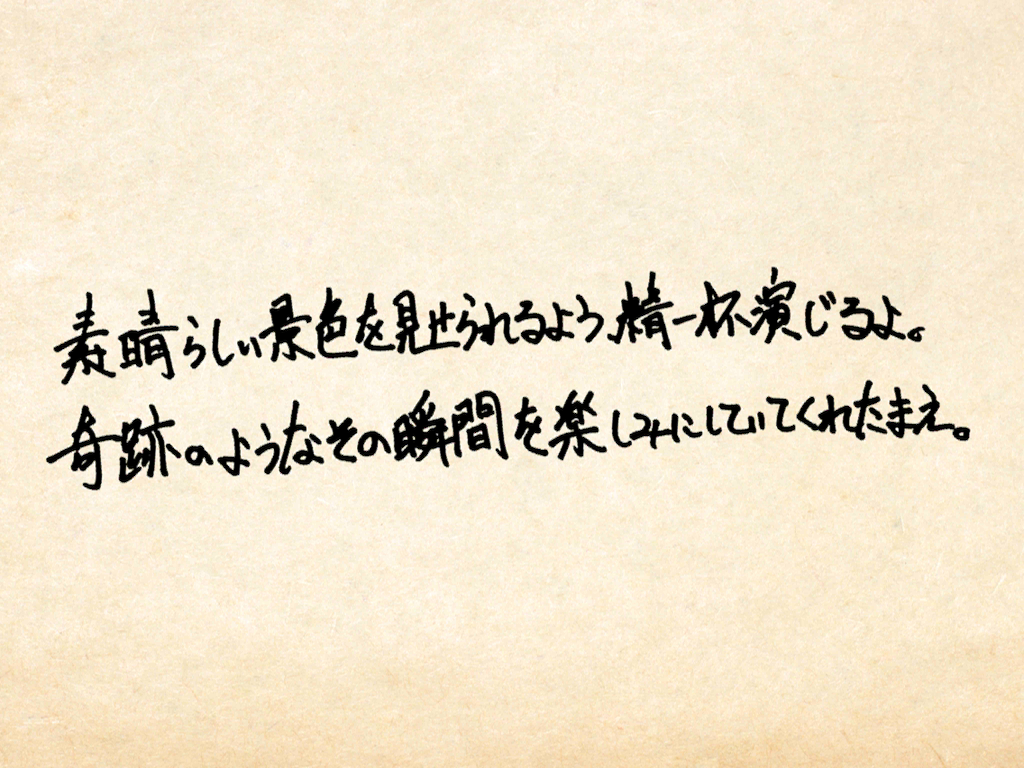 素晴らしい景色を見せられるよう、精一杯演じるよ。
奇跡のようなその瞬間を楽しみにしていてくれたまえ。